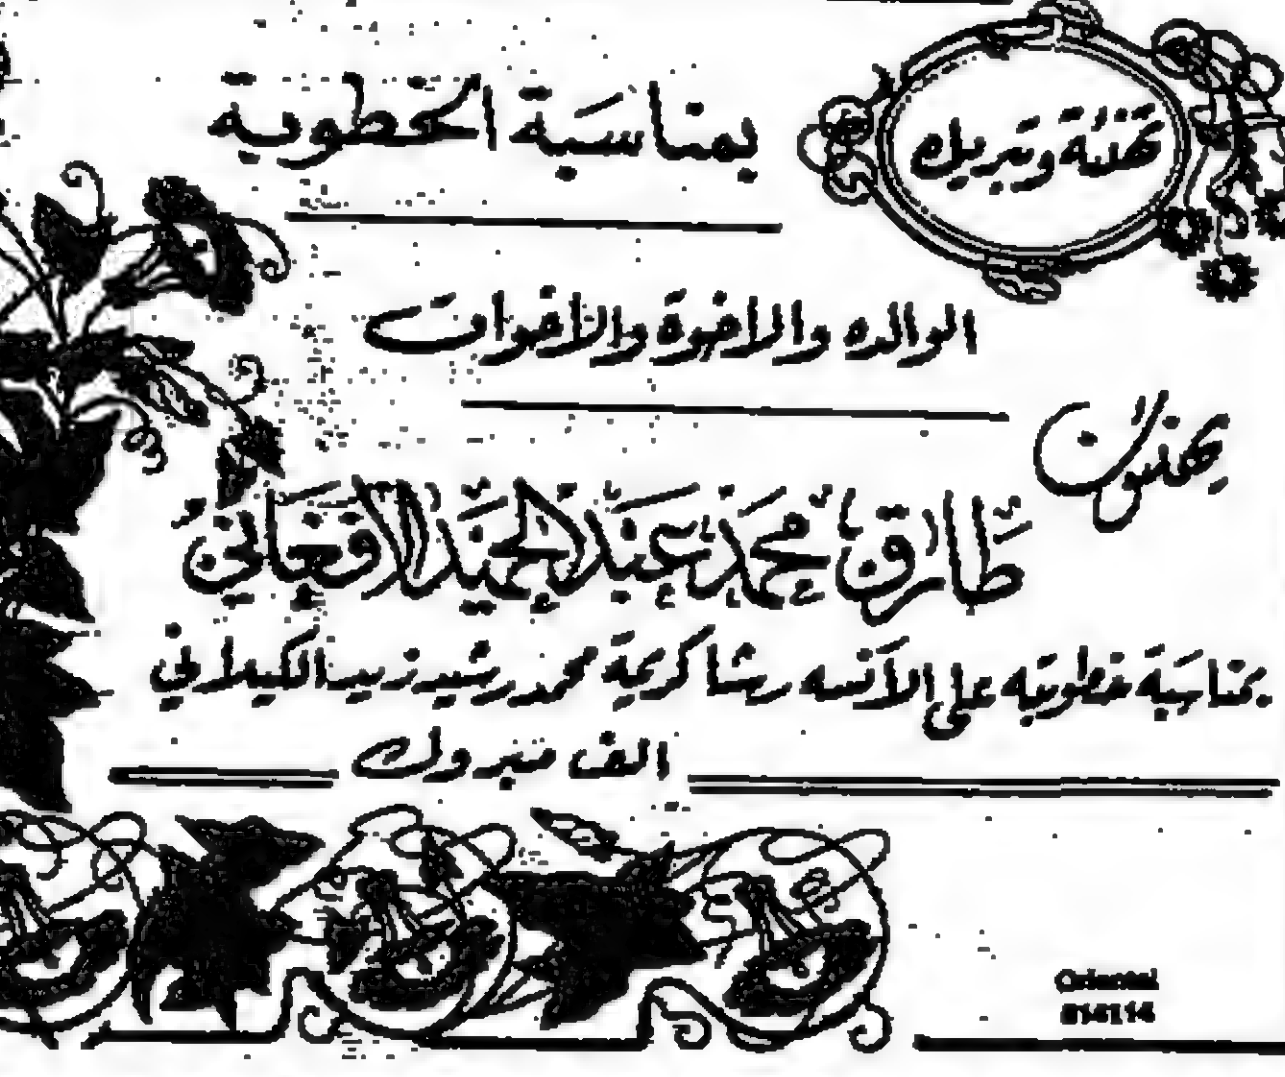 تهنئة وتبريك
بمناسبة الخطوبة
الوالده والاخوة والأخوات
يهنئون
طارق محمد عبد الحميد الافغاني
بمناسبة خطوبته على الآنسه رشا كريمة محمد رشيد زيد الكيلاني
الف مبروك
Oriental
814114